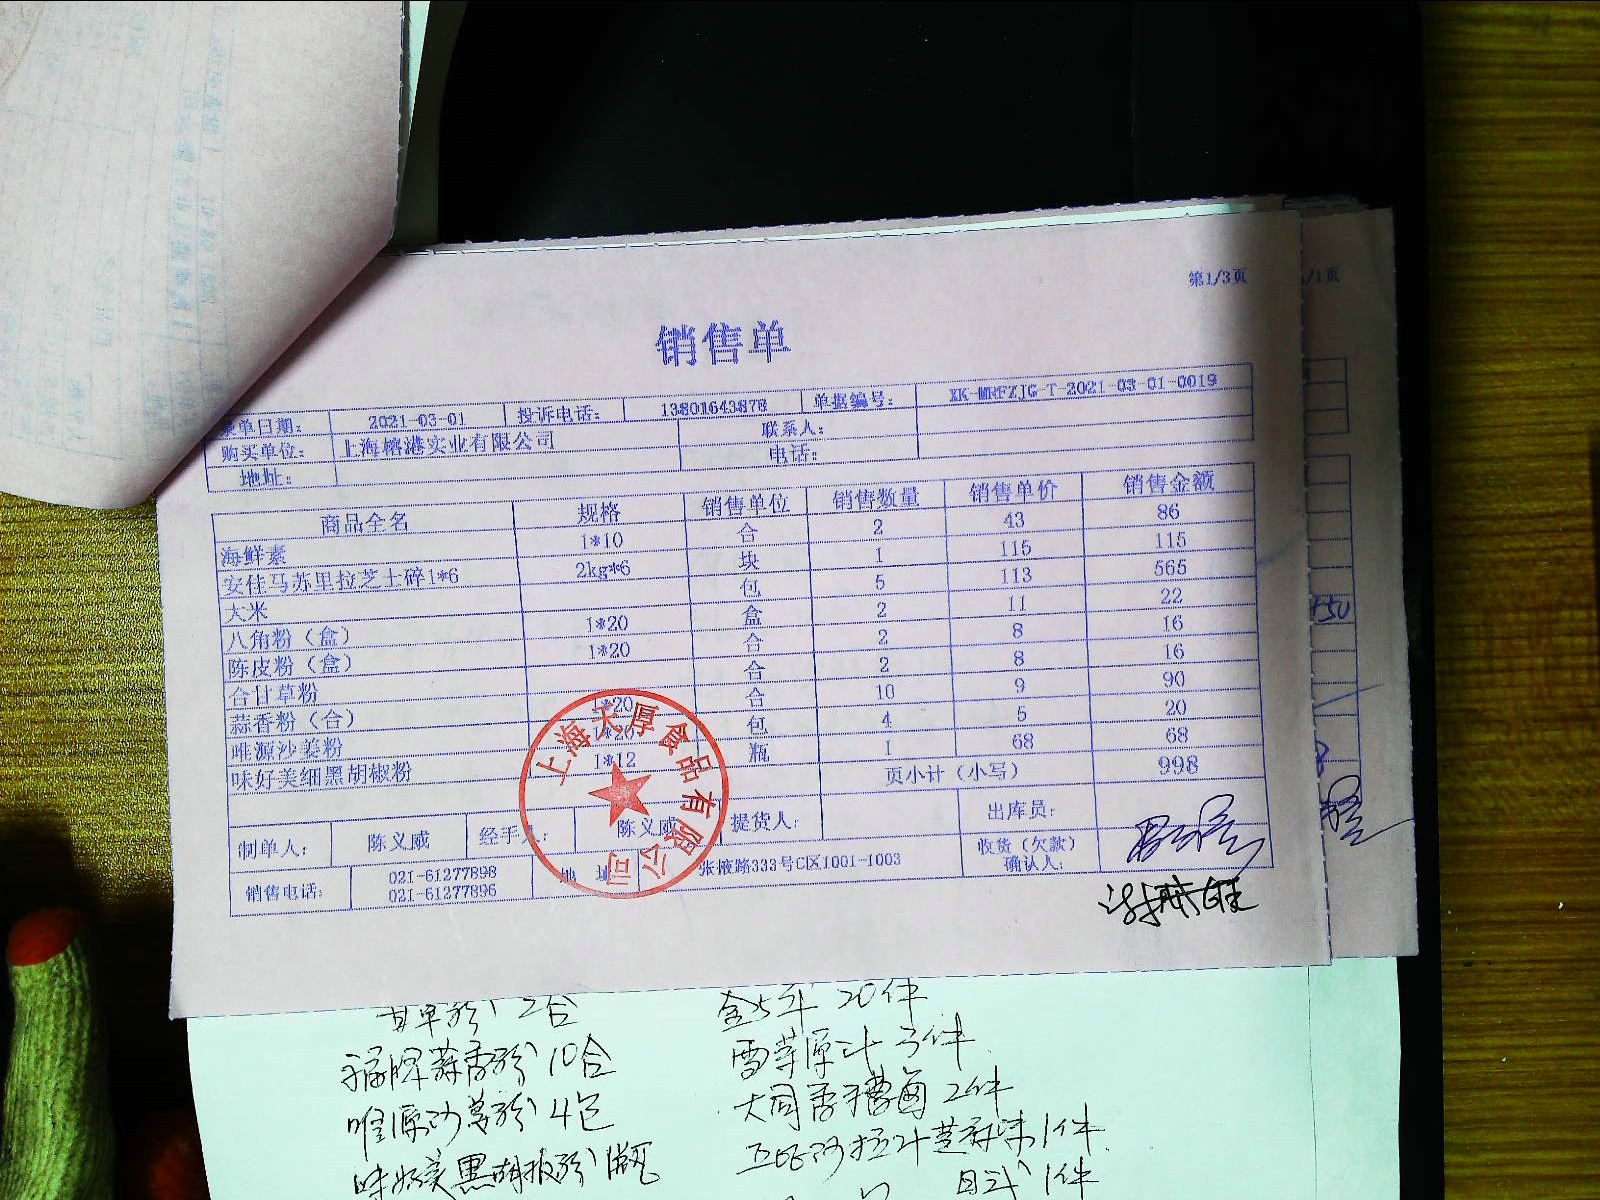 第1/3页
/1页
销售单
录单日期: 2021-03-01 投诉电话: 13801643878 单据编号: XK-MRFZJG-T-2021-03-01-0019
购买单位: 上海榕港实业有限公司 联系人:
地址: 电话:
商品全名 规格 销售单位 销售数量 销售单价 销售金额
海鲜素 1*10 合 2 43 86
安佳马苏里拉芝士碎1*6 2kg*6 块 1 115 115
大米 包 5 113 565
八角粉（盒） 1*20 盒 2 11 22
陈皮粉（盒） 1*20 合 2 8 16
合甘草粉 合 2 8 16
蒜香粉（合） 1*20 合 10 9 90
唯源沙姜粉 1*20 包 4 5 20
味好美细黑胡椒粉 1*12 瓶 1 68 68
页小计（小写） 998
制单人: 陈义威 经手人: 陈义威 提货人: 出库员:
收货（欠款）确认人:
销售电话: 021-61277898 地 址 张掖路333号C区1001-1003
021-61277896
上海天厚食品有限公司
甘草粉 2合 金5年 20件
福牌蒜香粉 10合 雪芽原汁 3件
唯源沙姜粉 4包 大同香糟卤 2件
味好美黑胡椒粉 1瓶
1件